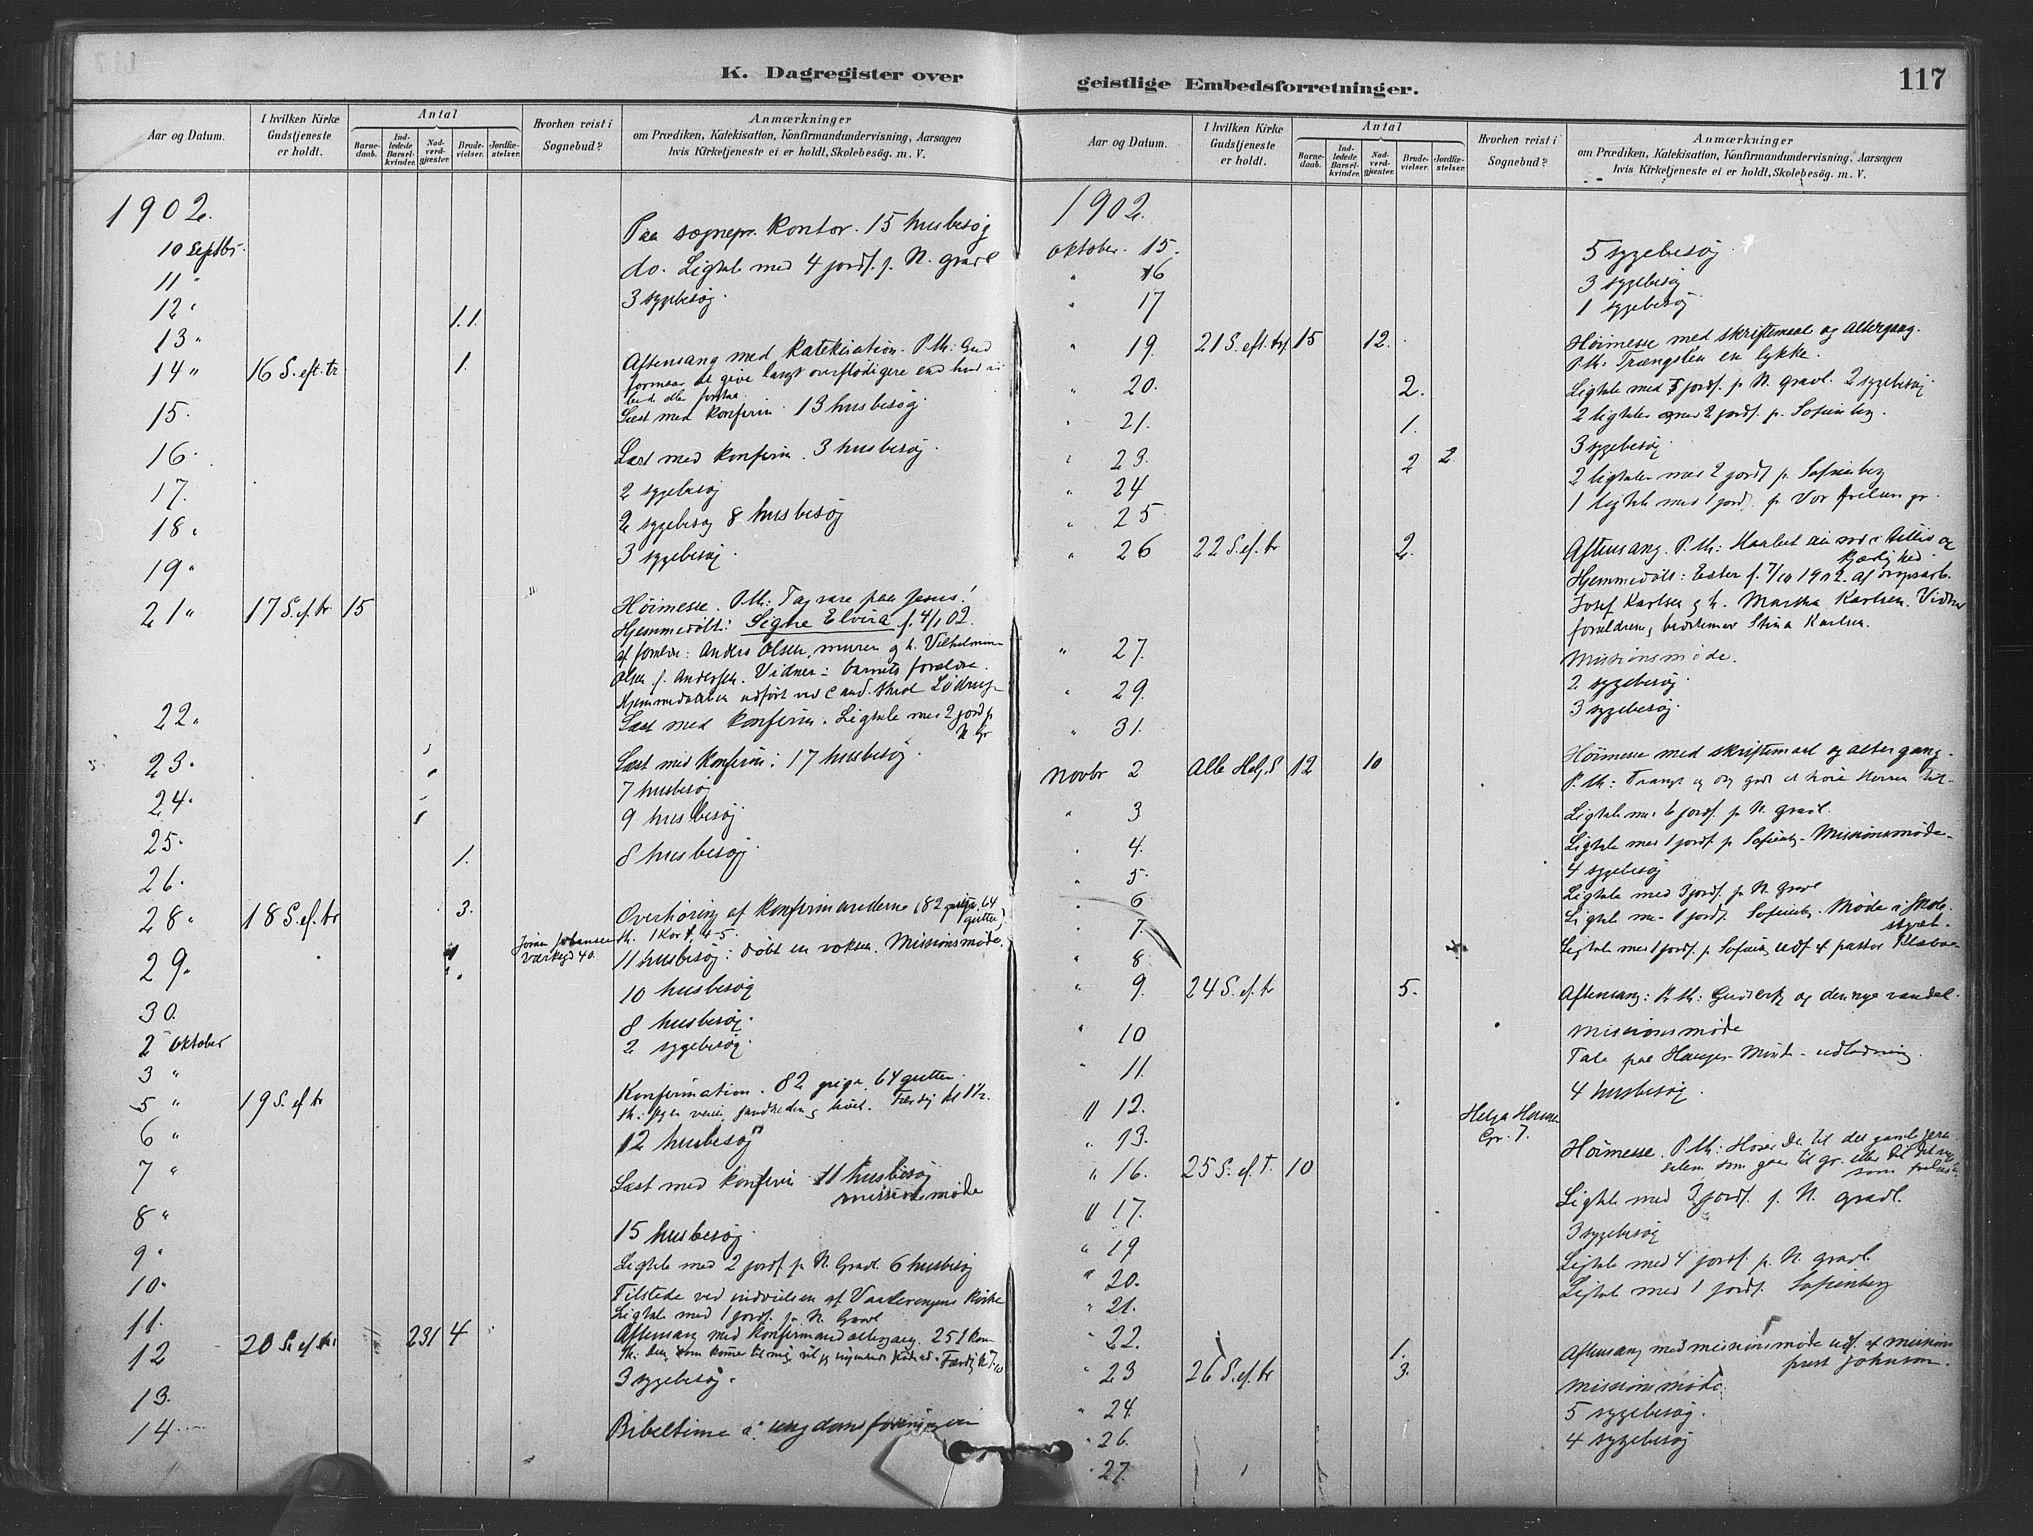 K. Dagregister over
Aar og Datum.
I hvilken Kirke Gudstjeneste er holdt.
Antal
Barnedaab.
Indledede Barselkvinder.
Nadverdgjester.
Brudevielser.
Jordfæstelser.
Hvorhen reist i Sognebud?
Anmærkninger
om Prædiken, Katekisation, Konfirmandundervisning, Aarsagen
hvis Kirketjeneste ei er holdt, Skolebesög. m. V.
1902.
10 Septbr. Paa sognepr. kontor. 15 husbesøg
11 " do. Ligtale med 4 jordf. p. N. gravl
12 " 1.1. 3 sygebesøg.
13 "
14 " 16 S. eft. tr 1. Aftensang med katekisation. P. th: Gud
formaar at give langt overflødigere end hvad vi
bede eller forstaa.
15. Læst med konfirm. 13 husbesøg.
16. Læst med konfirm. 3 husbesøg.
17. 2 sygebesøg
18. 2 sygebesøg 8 husbesøg
19 " 3 sygebesøg.
21 " 17 S. ef. tr 15 Høimesse. P. th: Tag vare paa Jesus!
Hjemmedøbt: Signe Elvira f. 4/1 02.
af forældre: Anders Olsen, murer og h. Vilhelmine
Olsen f. Andersen. Vidner: barnets forældre.
Hjemmedaaben udført ved Cand.
22. Læst med konfirm. Ligtale med 2 jord p
N. Gr
23. Læst med konfirm: 17 husbesøg.
24. 7 husbesøg
25. 9 husbesøg
26. 1. 8 husbesøg.
28 " 18 S. ef. tr 3. Overhøring af konfirmanderne (82 piger, 64
gutter)
th. 1 Kor 4-5.
29. Johansen 11 husbesøg: døbt en voksen. Missionsmøde.
40.
30. 10 husbesøg
2 Oktober 8 husbesøg.
3 " 2 sygebesøg.
5 " 19 S. ef tr Konfirmation. 82 piger, 64 gutter.
th: Jeg er veien, sandheden og livet. Færdig kl 1 1/2.
6 " 12 husbesøg
7 " Læst med konfirm 11 husbesøg
missionsmøde
8 " 15 husbesøg
9 " Ligtale med 2 jordf. p. N. Gravl. 6 husbesøg
10. Tilstede ved indvielsen af Vaalerengens kirke
11. Ligtale med 1 jordf. p. N. Gravl
12 20 S. ef. tr 231 4 Aftensang med konfirmandaltergang.
th: Den, som kommer til mig, vil jeg ingenlunde
13. 3 sygebesøg.
14 Bibeltime i ungdomsforeningen
geistlige Embedsforretninger.
117
Aar og Datum.
I hvilken Kirke Gudstjeneste er holdt.
Antal
Barnedaab.
Indledede Barselkvinder.
Nadverdgjester.
Brudevielser.
Jordfæstelser.
Hvorhen reist i Sognebud?
Anmærkninger
om Prædiken, Katekisation, Konfirmandundervisning, Aarsagen
hvis Kirketjeneste ei er holdt, Skolebesög. m. V.
1902.
Oktober 15. 5 sygebesøg.
" 16 3 sygebesøg
" 17 1 sygebesøg.
" 19. 21 S. eft. trf. 15 12. Høimesse med skriftemaal og altergang.
P. th: Trængslen en lykke.
" 20. 2. Ligtale med 5 jordf. p N. gravl. 2 sygebesøg.
" 21. 1. 2 ligtaler med 2 jordf. p. Sofienberg.
" 23. 2 2 3 sygebesøg.
" 24 2 ligtaler med 2 jordf p. Sofienberg
" 25 1 ligtale med 1 jord p Vor frelsers gr.
" 26 22 S. ef. tr 2. Aftensang. P. th:
kjærlighed.
Hjemmedøbt: Ester f. 7/10 1902. af
Josef Karlsen og h. Martha Karlsen. Vidner
forældrene, bedstemor Stina Karlsen.
" 27. Missionsmøde.
" 29. 2 sygebesøg.
" 31. 3 sygebesøg.
Novbr 2 Alle Helg. S 12 10 Høimesse med skriftemaal og altergang.
P. th: Trangt og dog godt at høre Herren til.
" 3 Ligtale med 6 jordf. p. N. gravl.
" 4. Ligtale med 1 jordf. p Sofienbg. Missionsmøde.
" 5. 4 sygebesøg
" 6. Ligtale med 3 jordf. p. N. Gravl
" 7. Ligtale med 1 jordf. Sofienbg. Møde i skole-
styret.
" 8. Ligtale med 1 jordf. p. Sofienbg udf af pastor
" 9. 24 S. ef. tr 5. Aftensang: P. th:
" 10 Missionsmøde
" 11. Tale paa Hauges Minde
" 12. 4 husbesøg.
" 13. Helga Hansen
Gr. 7.
" 16. 25 S. ef. T. 10 Høimesse. P. th: Hører du til det gamle Jeru-
salem som gaar til gr. eller til det nye
som
" 17. Ligtale med 3 jordf. p. N. gravl.
" 19 3 sygebesøg
" 20. Ligtale med 4 jordf. p. N. gravl.
" 21. Ligtale med 1 jordf. Sofienberg
" 22. 1.
" 23 26 S. ef. tr 3. Aftensang med missionsmøde udf. af missions
prest Johnson.
" 24. Missionsmøde
" 26. 5 sygebesøg.
" 27. 4 sygebesøg